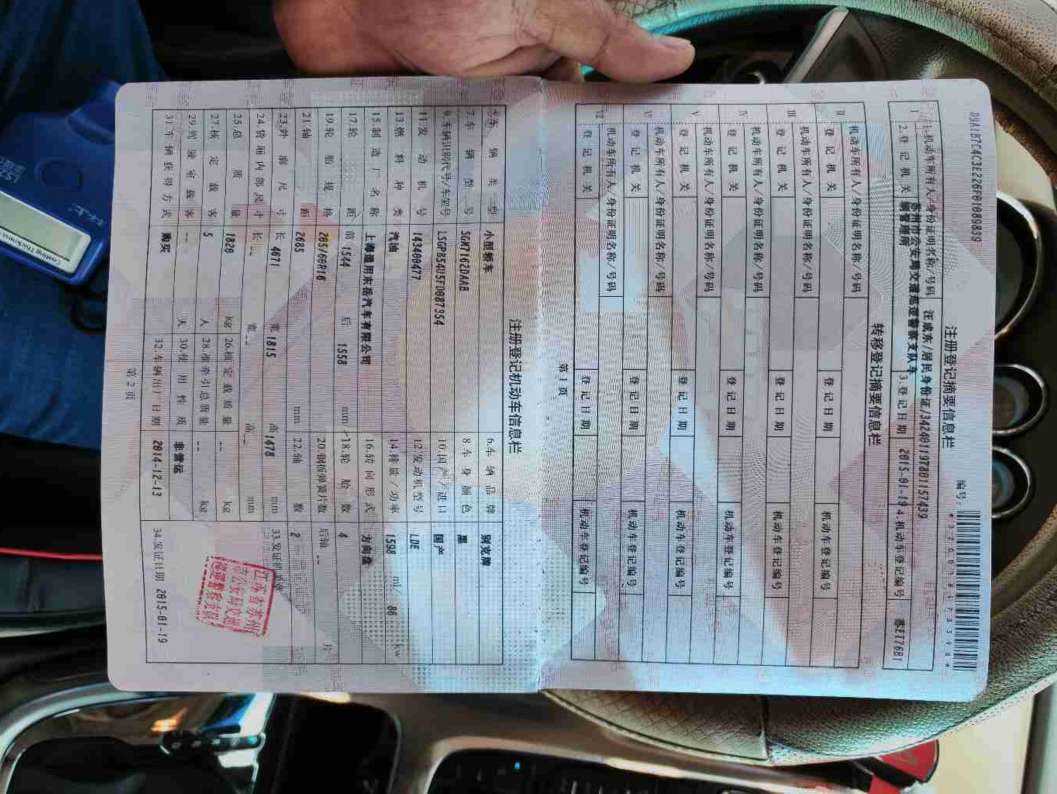 注册登记摘要信息栏
Ⅰ
1.机动车所有人/身份证明名称/号码 汪成东/居民身份证/342401197801157439
2.登记机关 苏州市公安局交通巡逻警察支队车辆管理所 3.登记日期 2015-01-19 4.机动车登记编号 苏E176B1
转移登记摘要信息栏
Ⅱ 机动车所有人/身份证明名称/号码
登记机关 登记日期 机动车登记编号
Ⅲ 机动车所有人/身份证明名称/号码
登记机关 登记日期 机动车登记编号
Ⅳ 机动车所有人/身份证明名称/号码
登记机关 登记日期 机动车登记编号
Ⅴ 机动车所有人/身份证明名称/号码
登记机关 登记日期 机动车登记编号
Ⅵ 机动车所有人/身份证明名称/号码
登记机关 登记日期 机动车登记编号
Ⅶ 机动车所有人/身份证明名称/号码
登记机关 登记日期 机动车登记编号
第1页
注册登记机动车信息栏
5.车辆类型 小型轿车 6.车辆品牌 别克牌
7.车辆型号 SGM7162DAAB 8.车身颜色 黑
9.车辆识别代号/车架号 LSGPB54U5FD087354 10.国产/进口 国产
11.发动机号 143400477 12.发动机型号 LDE
13.燃料种类 汽油 14.排量/功率 1598 ml/ 86 kw
15.制造厂名称 上海通用东岳汽车有限公司 16.转向形式 方向盘
17.轮距 前 1544 后 1558 mm 18.轮胎数 4
19.轮胎规格 205/60R16 20.钢板弹簧片数 后轴 -- 片
21.轴距 2685 mm 22.轴数 2
23.外廓尺寸 长 4671 宽 1815 高 1478 mm
24.货厢内部尺寸 长 -- 宽 -- 高 -- mm
25.总质量 1820 kg 26.核定载质量 -- kg
27.核定载客 5 人 28.准牵引总质量 -- kg
29.驾驶室载客 -- 人 30.使用性质 非营运
31.车辆获得方式 购买 32.车辆出厂日期 2014-12-13
33.发证机关
34.发证日期 2015-01-19
第2页